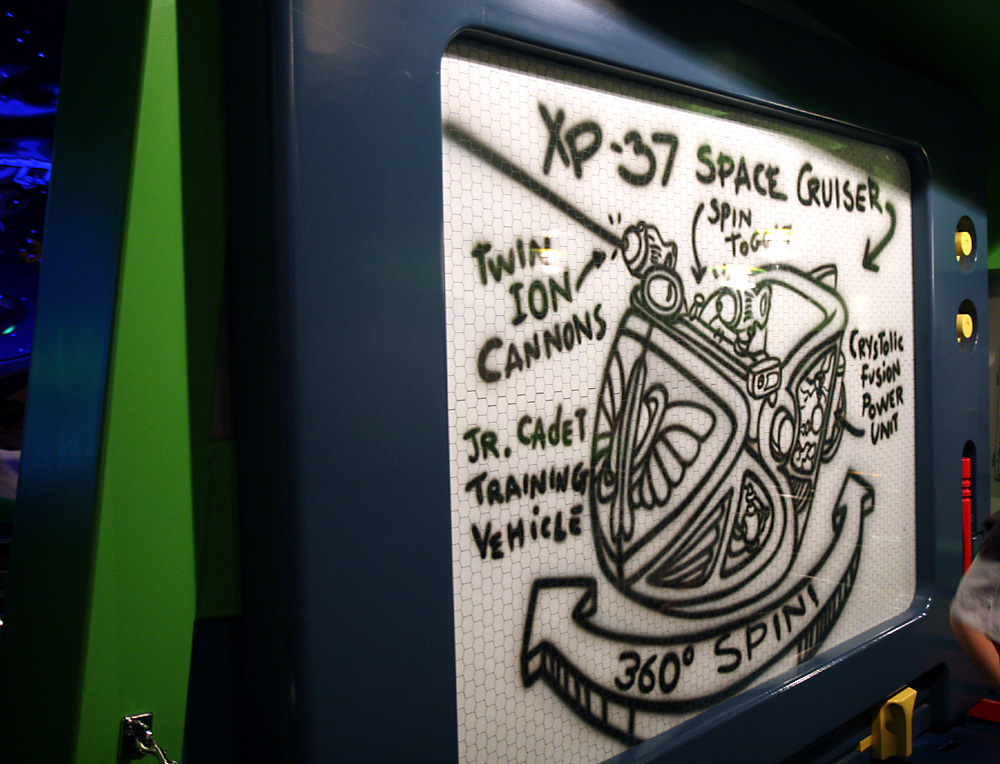 XP-37 SPACE CRUISER
SPIN
TOGGLE
TWIN
ION
CANNONS
CRYSTOLIC
FUSION
POWER
UNIT
JR. CADET
TRAINING
VEHICLE
360° SPIN!